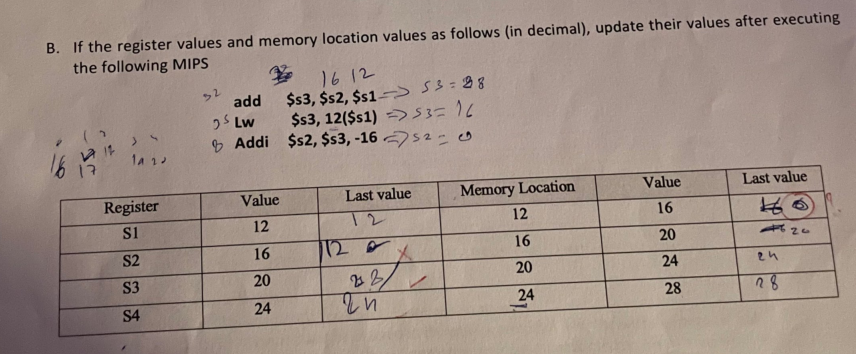 B. If the register values and memory location values as follows (in decimal), update their values after executing
the following MIPS
16 12
s2 add $s3, $s2, $s1 => S3 = 28
Lw $s3, 12($s1) => S3 = 16
Addi $s2, $s3, -16 => S2 = 0
16 17
Register Value Last value Memory Location Value Last value
S1 12 12 12 16
S2 16 16 20 20
S3 20 20 24 24
S4 24 24 24 28 28